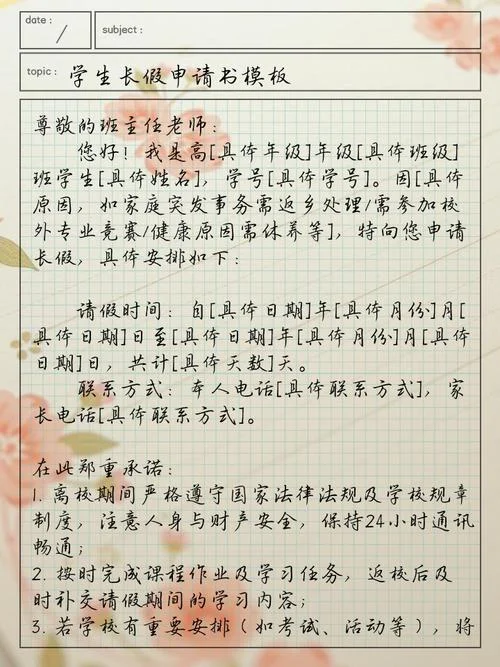 date :
subject :
topic : 学生长假申请书模板
尊敬的班主任老师：
您好！我是高[具体年级]年级[具体班级]
班学生[具体姓名]，学号[具体学号]。因[具体
原因，如家庭突发事务需返乡处理/需参加校
外专业竞赛/健康原因需休养等]，特向您申请
长假，具体安排如下：
请假时间：自[具体日期]年[具体月份]月[
具体日期]日至[具体日期]年[具体月份]月[具体
日期]日，共计[具体天数]天。
联系方式：本人电话[具体联系方式]，家
长电话[具体联系方式]。
在此郑重承诺：
1. 离校期间严格遵守国家法律法规及学校规章
制度，注意人身与财产安全，保持24小时通讯
畅通；
2. 按时完成课程作业及学习任务，返校后及
时补交请假期间的学习内容；
3. 若学校有重要安排（如考试、活动等），将